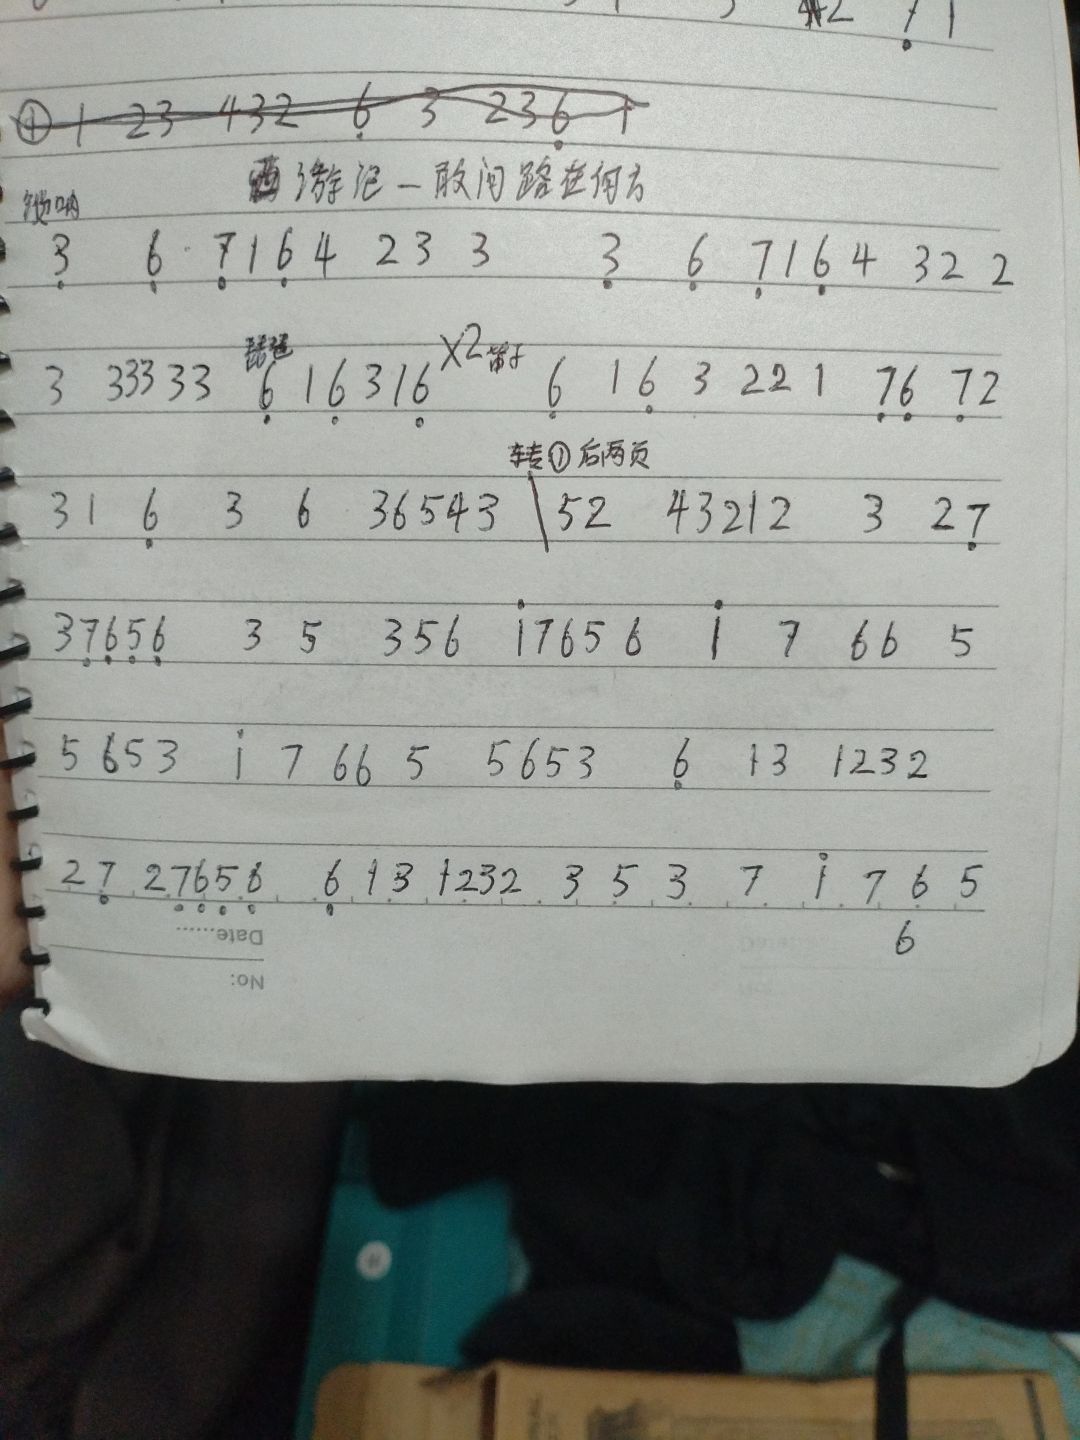 #2 7̣ 1
① 1 23 432 6̣ 3 236̣ 1
西游记一敢问路在何方
唢呐
3̣ 6̣ 7̣16̣4 23 3 3̣ 6̣ 7̣16̣4 32 2
琵琶 X2 笛子
3 333 33 6̣ 16̣ 316̣ 6̣ 16̣ 3 221 7̣6̣ 7̣2
转①后两页
31 6̣ 3 6 36543 \ 52 43212 3 27̣
37̣6̣5̣6̣ 3 5 356 i7656 i 7 66 5
5 653 i 7 66 5 5653 6̣ 13 1232
27̣ 27̣6̣5̣6̣ 6̣ 13 1232 3 5 3 7 i 7 6 5
6
Date......
No: